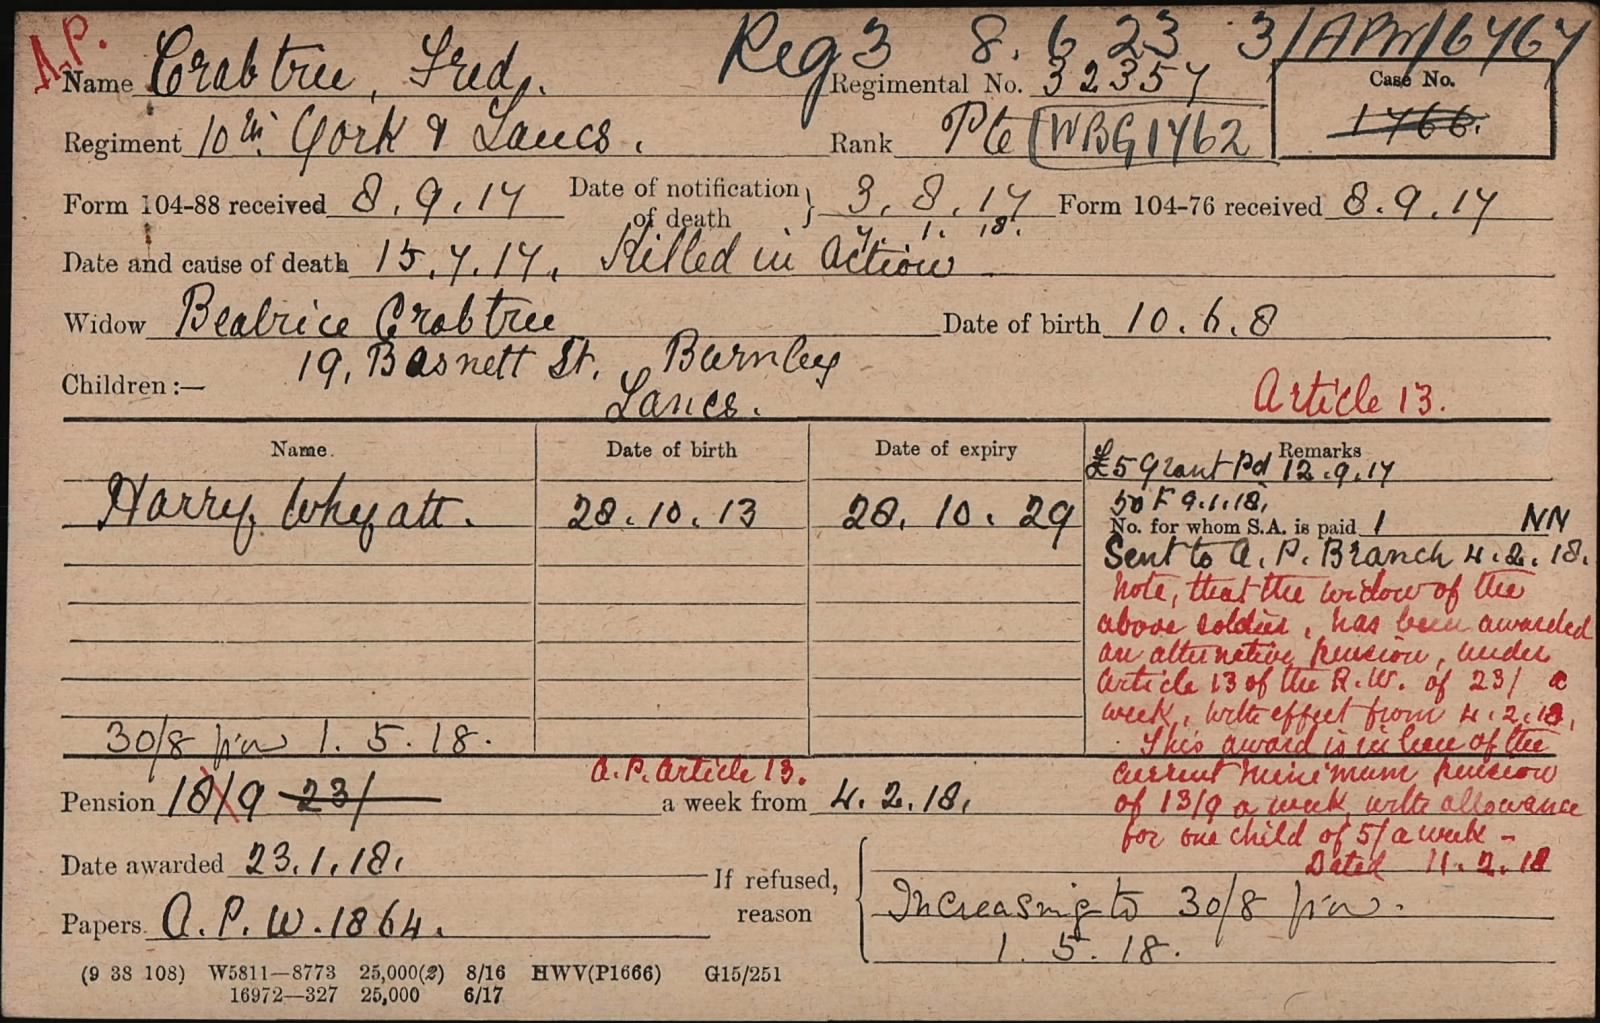 A.P.
Reg 3 8. 6 23 3/APW/6767
Name Crabtree, Fred. Regimental No. 32357 Case No.
1766.
Regiment 10th York & Lancs. Rank Pte WBG1762
Form 104-88 received 8.9.17 Date of notification of death } 3.8.17 Form 104-76 received 8.9.17
7. 1. 18.
Date and cause of death 15.7.17. Killed in Action
Widow Beatrice Crabtree Date of birth 10.6.8
19, Basnett St., Burnley
Children :— Lancs. Article 13.
Name. Date of birth Date of expiry Remarks
£5 Grant Pd 12.9.17
Harry Whyatt. 28.10.13 28.10.29 50 F 9.1.18.
No. for whom S.A. is paid 1 NN
Sent to A.P. Branch 4.2.18.
Note, that the widow of the
above soldier, has been awarded
an alternative pension, under
Article 13 of the R.W. of 23/ a
week, with effect from 4.2.18.
30/8 p.w 1.5.18. This award is in lieu of the
A.P. Article 13. current minimum pension
Pension 18/9 23/ a week from 4.2.18. of 13/9 a week with allowance
for one child of 5/ a week –
Dated 11.2.18
Date awarded 23.1.18.
If refused, reason { Increasing to 30/8 p.w.
1.5.18.
Papers A.P.W.1864.
(9 38 108) W5811—8773 25,000(2) 8/16 HWV(P1666) G15/251
16972—327 25,000 6/17